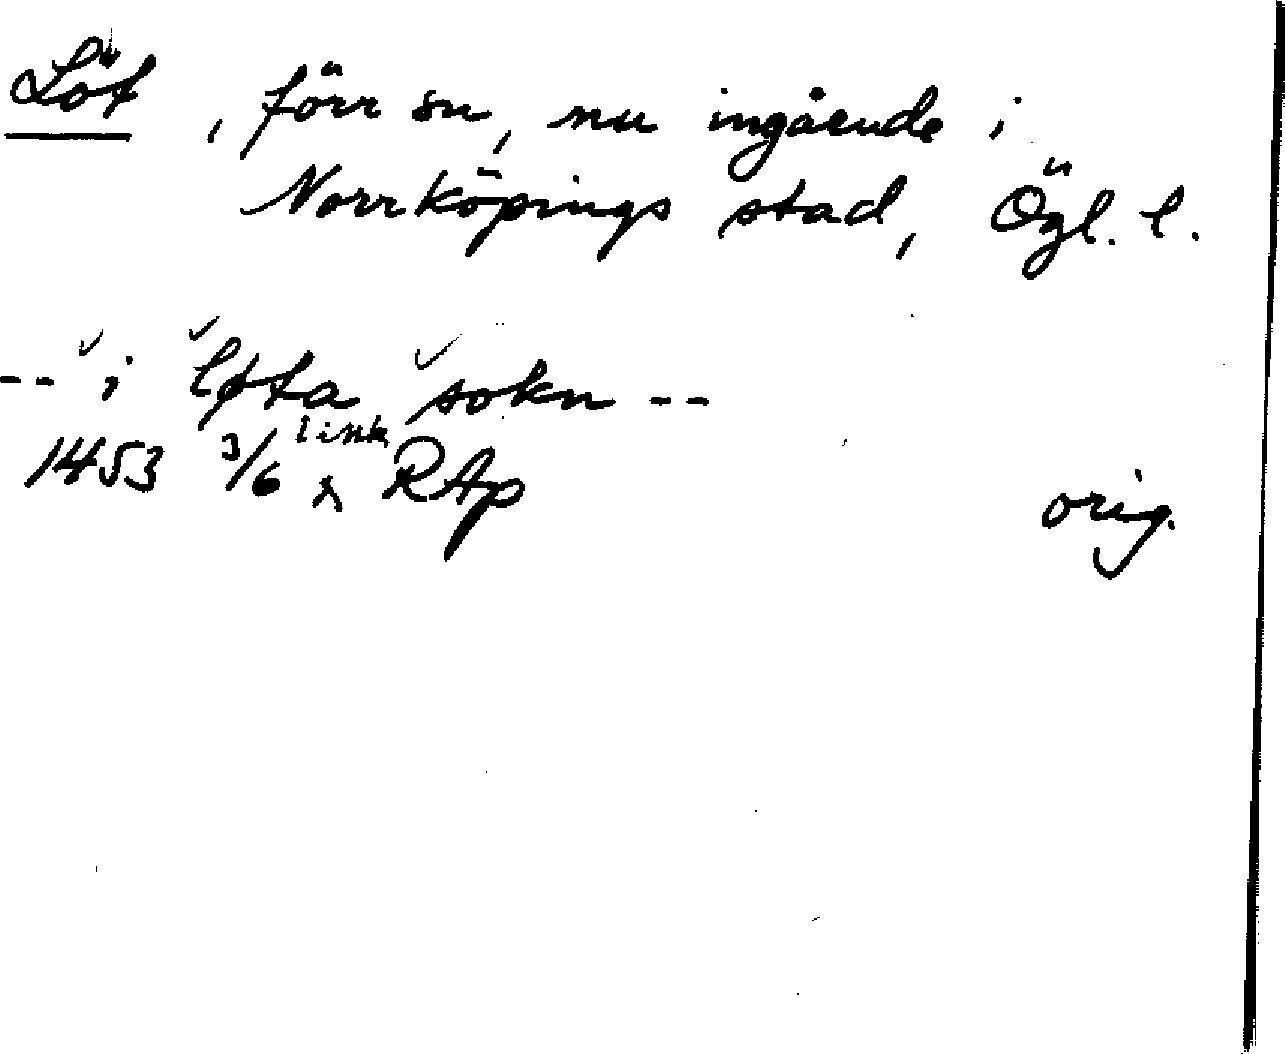 Löt, förr sn, nu ingående i
Norrköpings stad, Ögl. l.
-- i løta sokn --
1453 3/6 Link RAp orig.